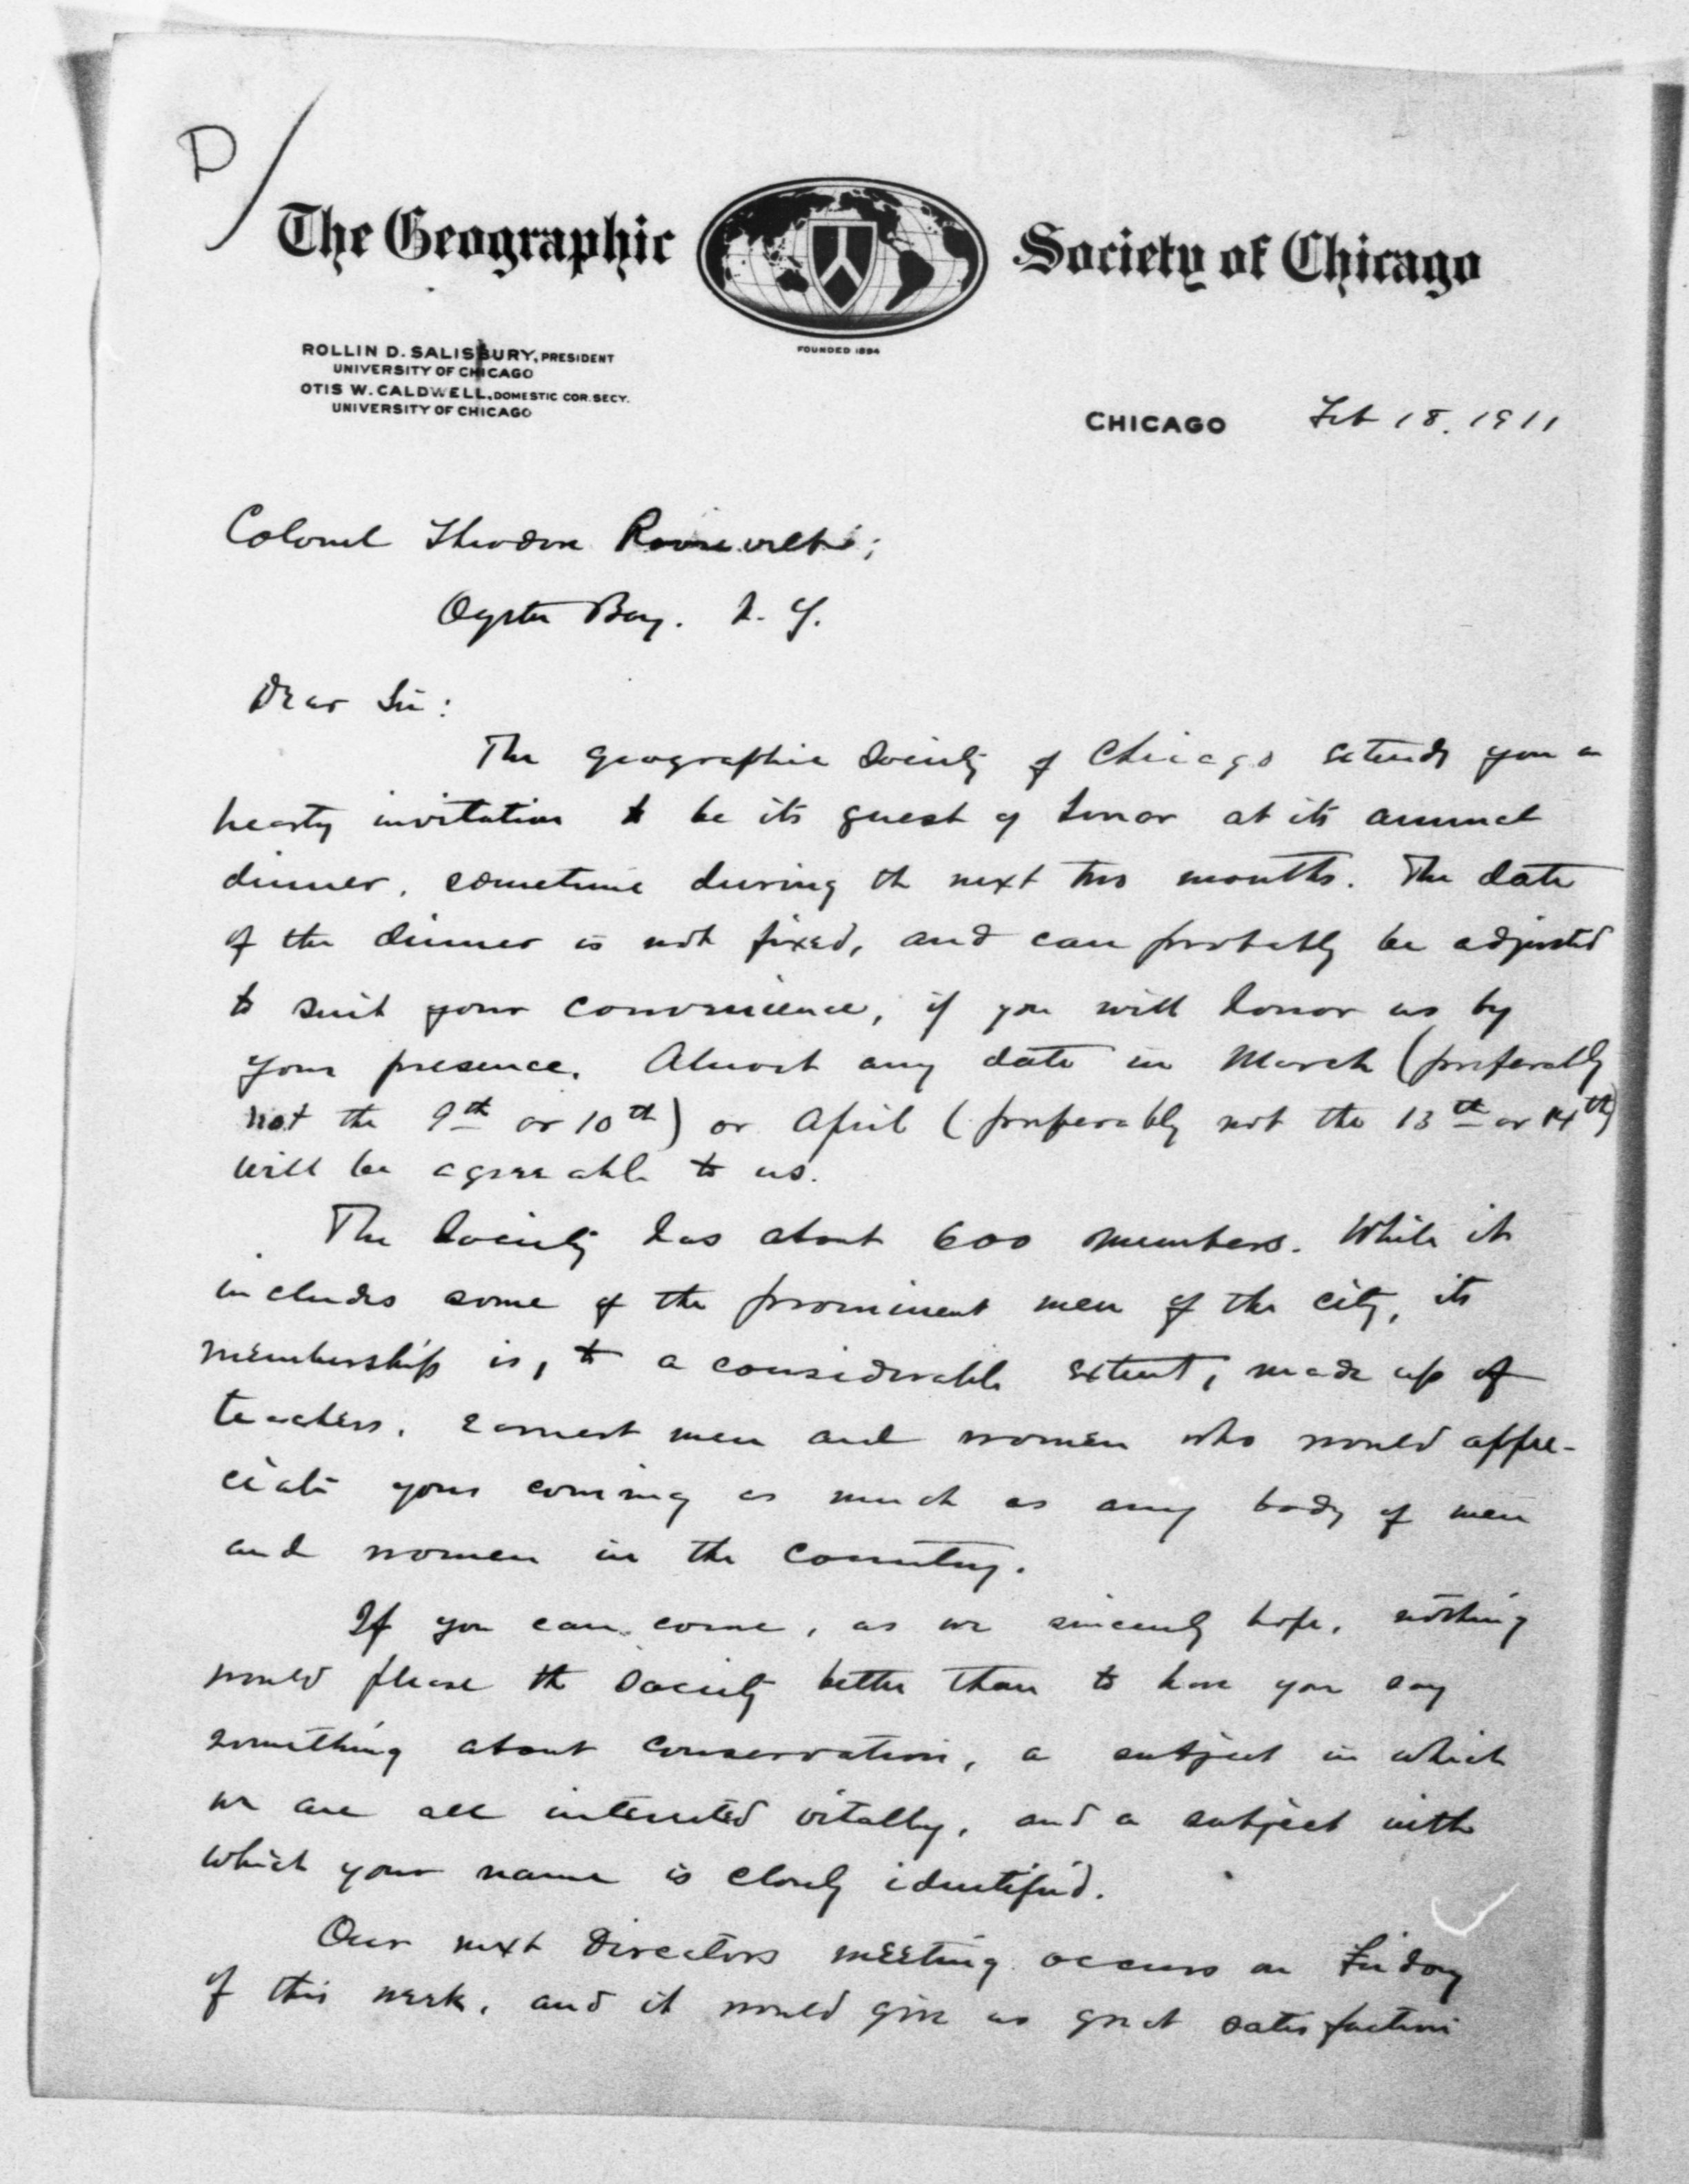 D/
The Geographic Society of Chicago
FOUNDED 1894
ROLLIN D. SALISBURY, PRESIDENT
UNIVERSITY OF CHICAGO
OTIS W. CALDWELL, DOMESTIC COR. SECY.
UNIVERSITY OF CHICAGO
CHICAGO Feb 18. 1911
Colonel Theodore Roosevelt;
Oyster Bay. N. Y.
Dear Sir:
The Geographic Society of Chicago extends you a
hearty invitation to be its guest of honor at its annual
dinner, sometime during the next two months. The date
of the dinner is not fixed, and can probably be adjusted
to suit your convenience, if you will honor us by
your presence. Almost any date in March (preferably
not the 9th or 10th) or April (preferably not the 13th or 14th)
will be agreeable to us.
The Society has about 600 members. While it
includes some of the prominent men of the city, its
membership is, to a considerable extent, made up of
teachers, earnest men and women who would appre-
ciate your coming as much as any body of men
and women in the country.
If you can come, as we sincerely hope, nothing
would please the Society better than to have you say
something about conservation, a subject in which
we are all interested vitally, and a subject with
which your name is closely identified.
Our next Directors meeting occurs on Friday
of this week, and it would give us great satisfaction